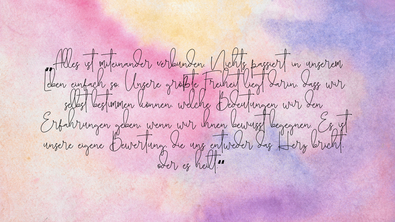 "Alles ist miteinander verbunden. Nichts passiert in unserem
Leben einfach so. Unsere größte Freiheit liegt darin dass wir
selbst bestimmen können welche Bedeutungen wir den
Erfahrungen geben wenn wir ihnen bewusst begegnen. Es ist
unsere eigene Bewertung die uns entweder das Herz bricht
oder es heilt"